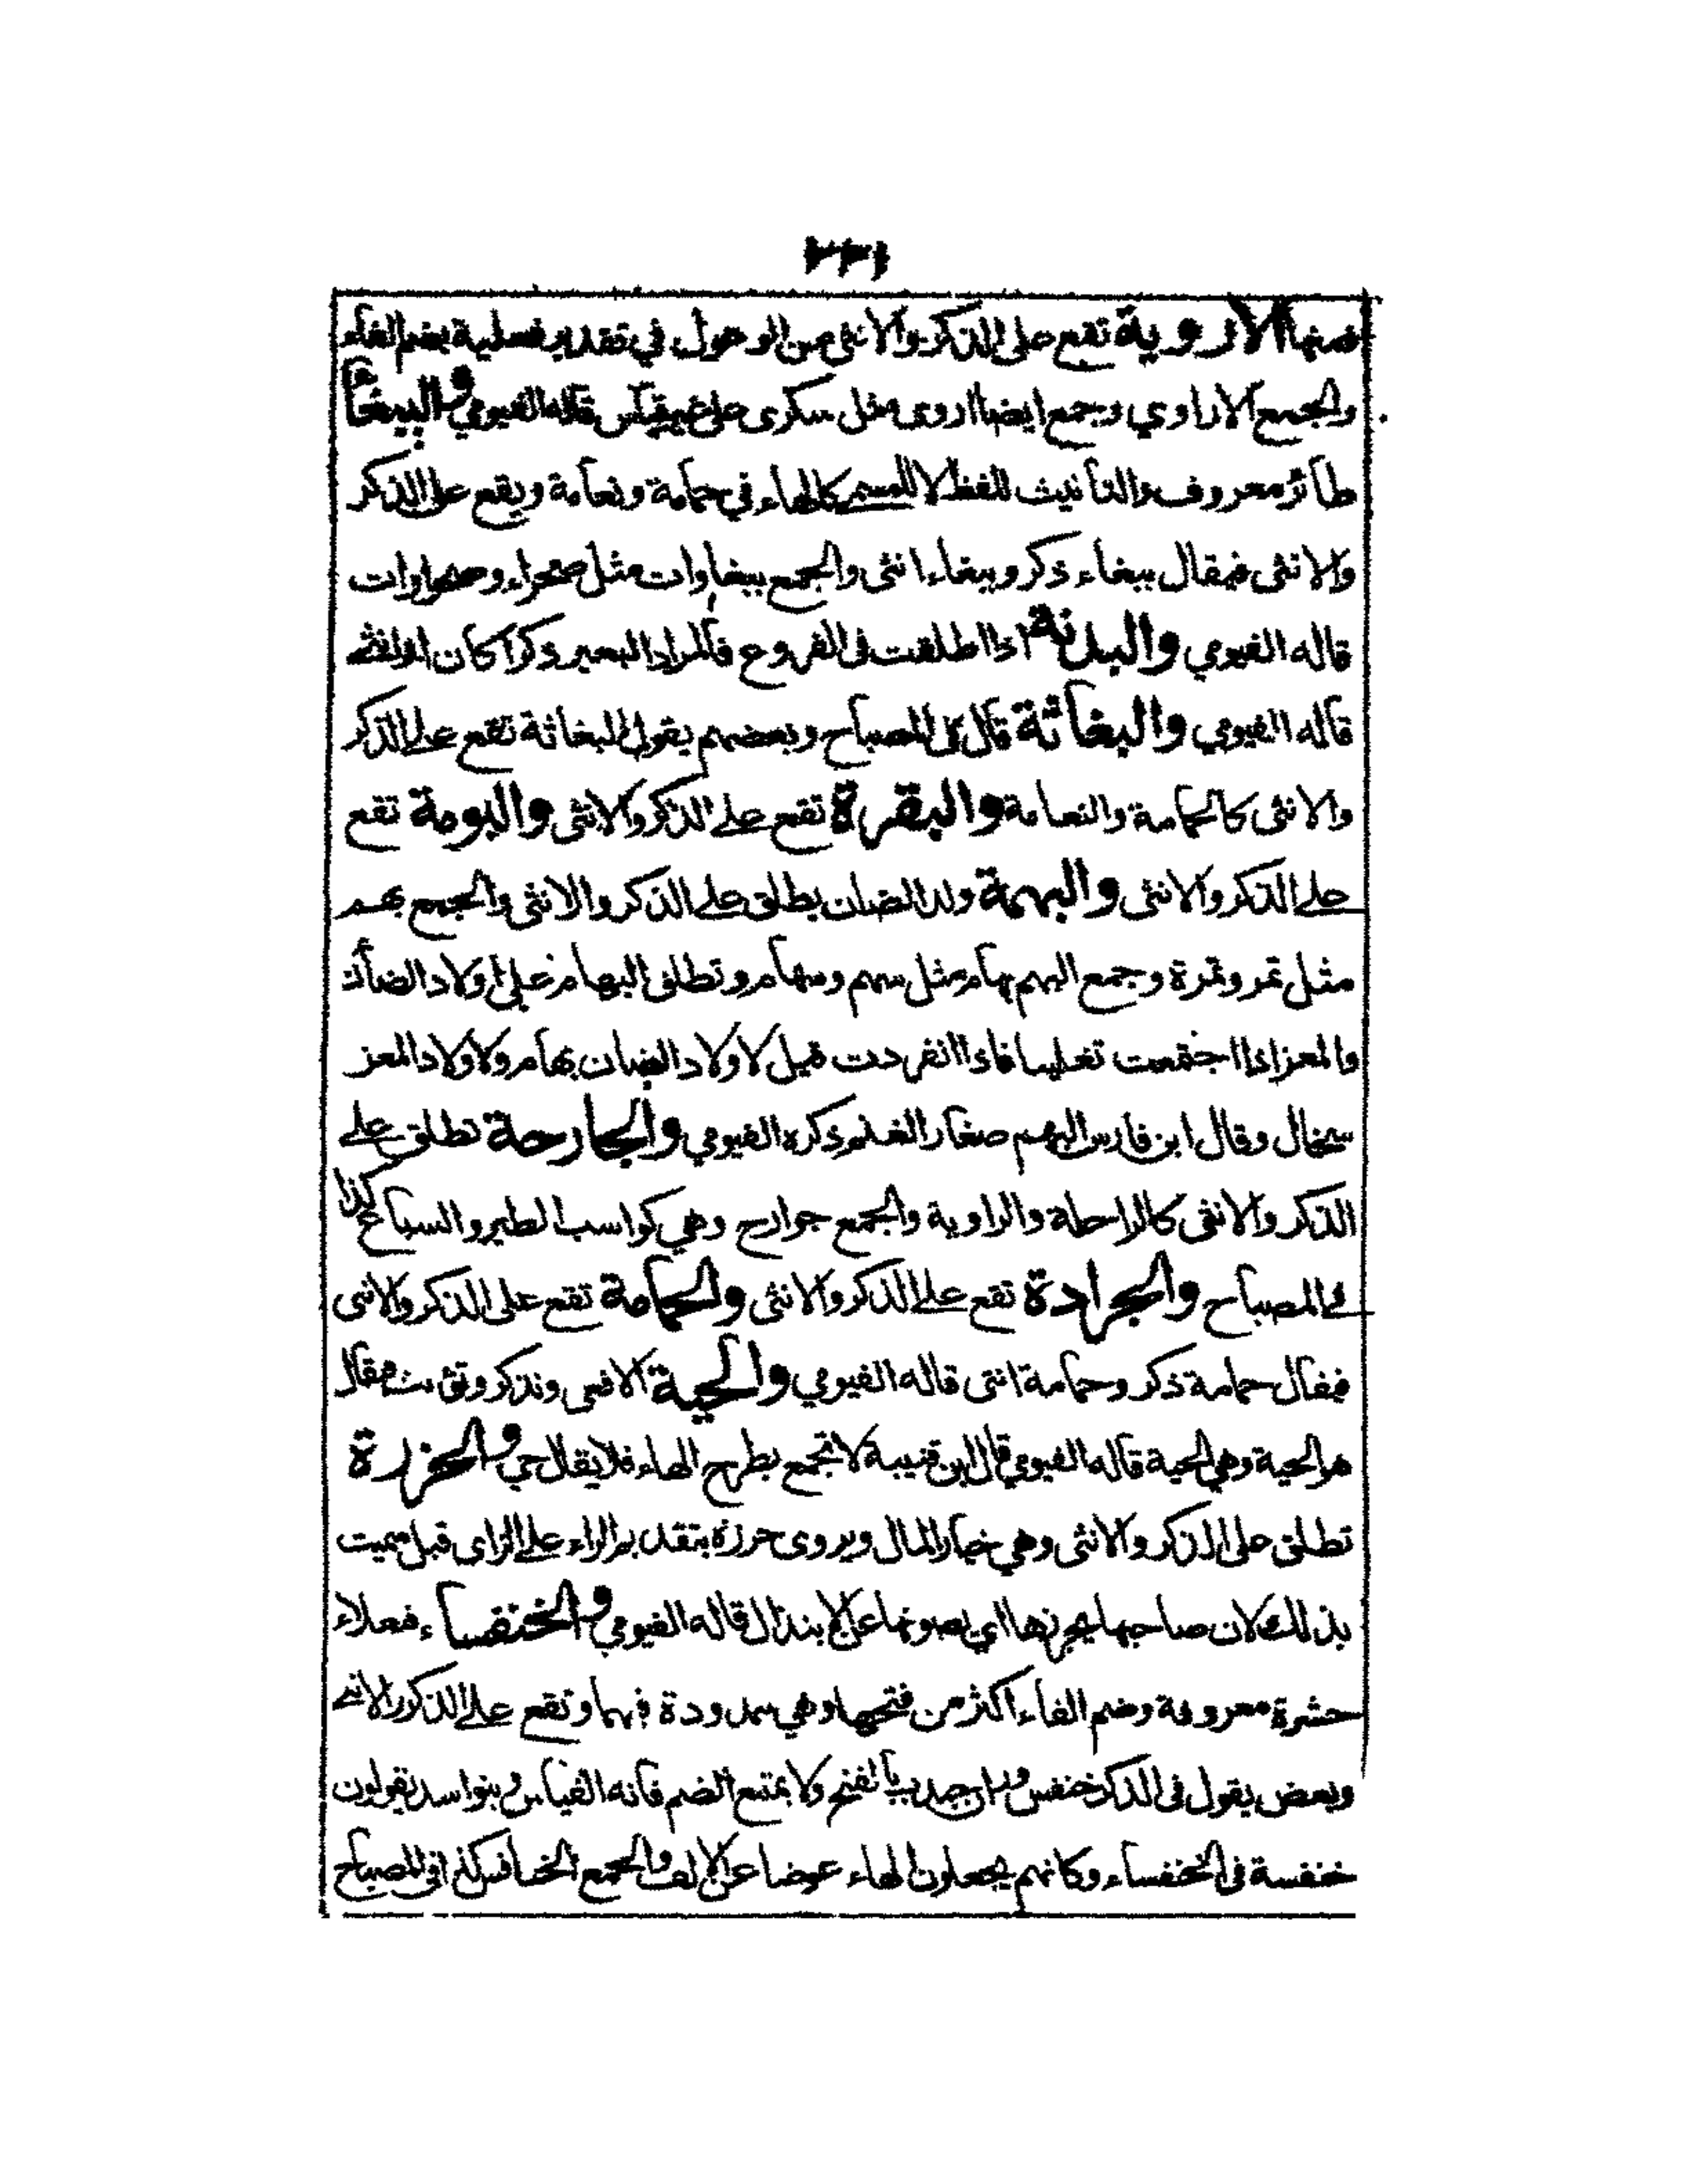 فمنها الاروية تقع على الذكر والانثى من الوعول في تقدير فعلية بضم الفاء
والجمع الاراوي وجمع ايضا اروى مثل سكرى على غير قياس قاله الفيومي والببغآء
طآئر معروف والتأنيث للفظ لا للمسمى كالهاء في حمامة ونعامة ويقع على الذكر
والانثى فيقال ببغاء ذكر وببغاء انثى والجمع ببغاوات مثل صحراء وصحراوات
قاله الفيومي والبدنة اذا اطلقت فى الفروع فالمراد البعير ذكرا كان او انثى
قاله الفيومي والبغاثة قال فى المصباح وبعضهم يقول البغاثة تقع على الذكر
والانثى كالحمامة والنعامة والبقرة تقع على الذكر والانثى والبومة تقع
على الذكر والانثى والبهمة ولد الضان يطلق على الذكر والانثى والجمع بهم
مثل تمر وتمرة وجمع البهم بهام مثل سهم وسهام وتطلق البهام على اولاد الضأن
والمعز اذا اجتمعت تغليبا فاذا انفردت قيل لاولاد الضان بهام ولاولاد المعز
سخال وقال ابن فارس البهم صغار الغنم ذكره الفيومي والجارحة تطلق على
الذكر والانثى كالراحلة والراوية والجمع جوارح وهي كواسب الطير والسباع كذا
فى المصباح والجرادة تقع على الذكر والانثى والحمامة تقع على الذكر والانثى
فيقال حمامة ذكر وحمامة انثى قاله الفيومي والحية الافعى وتذكر وتؤنث فيقال
هو الحية وهي الحية قاله الفيومي قال ابن قتيبة لا تجمع بطرح الهاء فلا يقال حي والحزرة
تطلق على الذكر والانثى وهي خيار المال ويروى حرزة بتقديم الراء على الزاى قبل سميت
بذلك لان صاحبها يحرزها اي يصونها عن الابتذال قاله الفيومي والخنفساء فعلاء
حشرة معروفة وضم الفاء اكثر من فتحها وهي ممدودة فيهما وتقع على الذكر والانثى
وبعض يقول فى الذكر خنفس وزان جندب بالفتح ولا يمتنع الضم فانه القياس وبنو اسد يقولون
خنفسة فى الخنفساء وكانهم يجعلون الهاء عوضا عن الالف والجمع الخنافس كذا فى المصباح